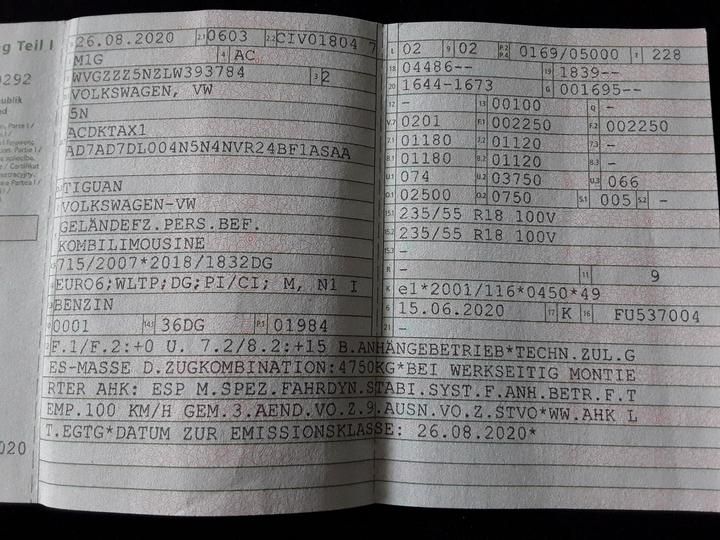 g Teil I
0292
26.08.2020 2.1 0603 2.2 CIV01804 7
M1G 4 AC
WVGZZZ5NZLW393784 3 2
VOLKSWAGEN, VW
5N
ACDKTAX1
AD7AD7DL004N5N4NVR24BF1ASAA
TIGUAN
VOLKSWAGEN-VW
GELÄNDEFZ.PERS.BEF.
KOMBILIMOUSINE
715/2007*2018/1832DG
EURO6;WLTP;DG;PI/CI; M, N1 I
BENZIN
0001 14.1 36DG P.1 01984
L 02 9 02 P.2 P.4 0169/05000 T 228
18 04486-- 19 1839--
20 1644-1673 G 001695--
12 - 13 00100 Q -
V.7 0201 F.1 002250 F.2 002250
7.1 01180 7.2 01120 7.3 -
8.1 01180 8.2 01120 8.3 -
U.1 074 U.2 03750 U.3 066
O.1 02500 O.2 0750 S.1 005 S.2 -
15.1 235/55 R18 100V
15.2 235/55 R18 100V
15.3 -
R - 11 9
K e1*2001/116*0450*49
6 15.06.2020 17 K 16 FU537004
21 -
F.1/F.2:+0 U. 7.2/8.2:+15 B.ANHÄNGEBETRIEB*TECHN.ZUL.G
ES-MASSE D.ZUGKOMBINATION:4750KG*BEI WERKSEITIG MONTIE
RTER AHK: ESP M.SPEZ.FAHRDYN.STABI.SYST.F.ANH.BETR.F.T
EMP.100 KM/H GEM.3.AEND.VO.Z.9.AUSN.VO.Z.STVO*WW.AHK L
T.EGTG*DATUM ZUR EMISSIONSKLASSE: 26.08.2020*
020